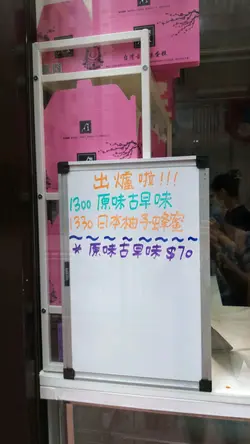 出爐啦!!!
1300 原味古早味
1330 日本柚子蜂蜜
* 原味古早味 $70